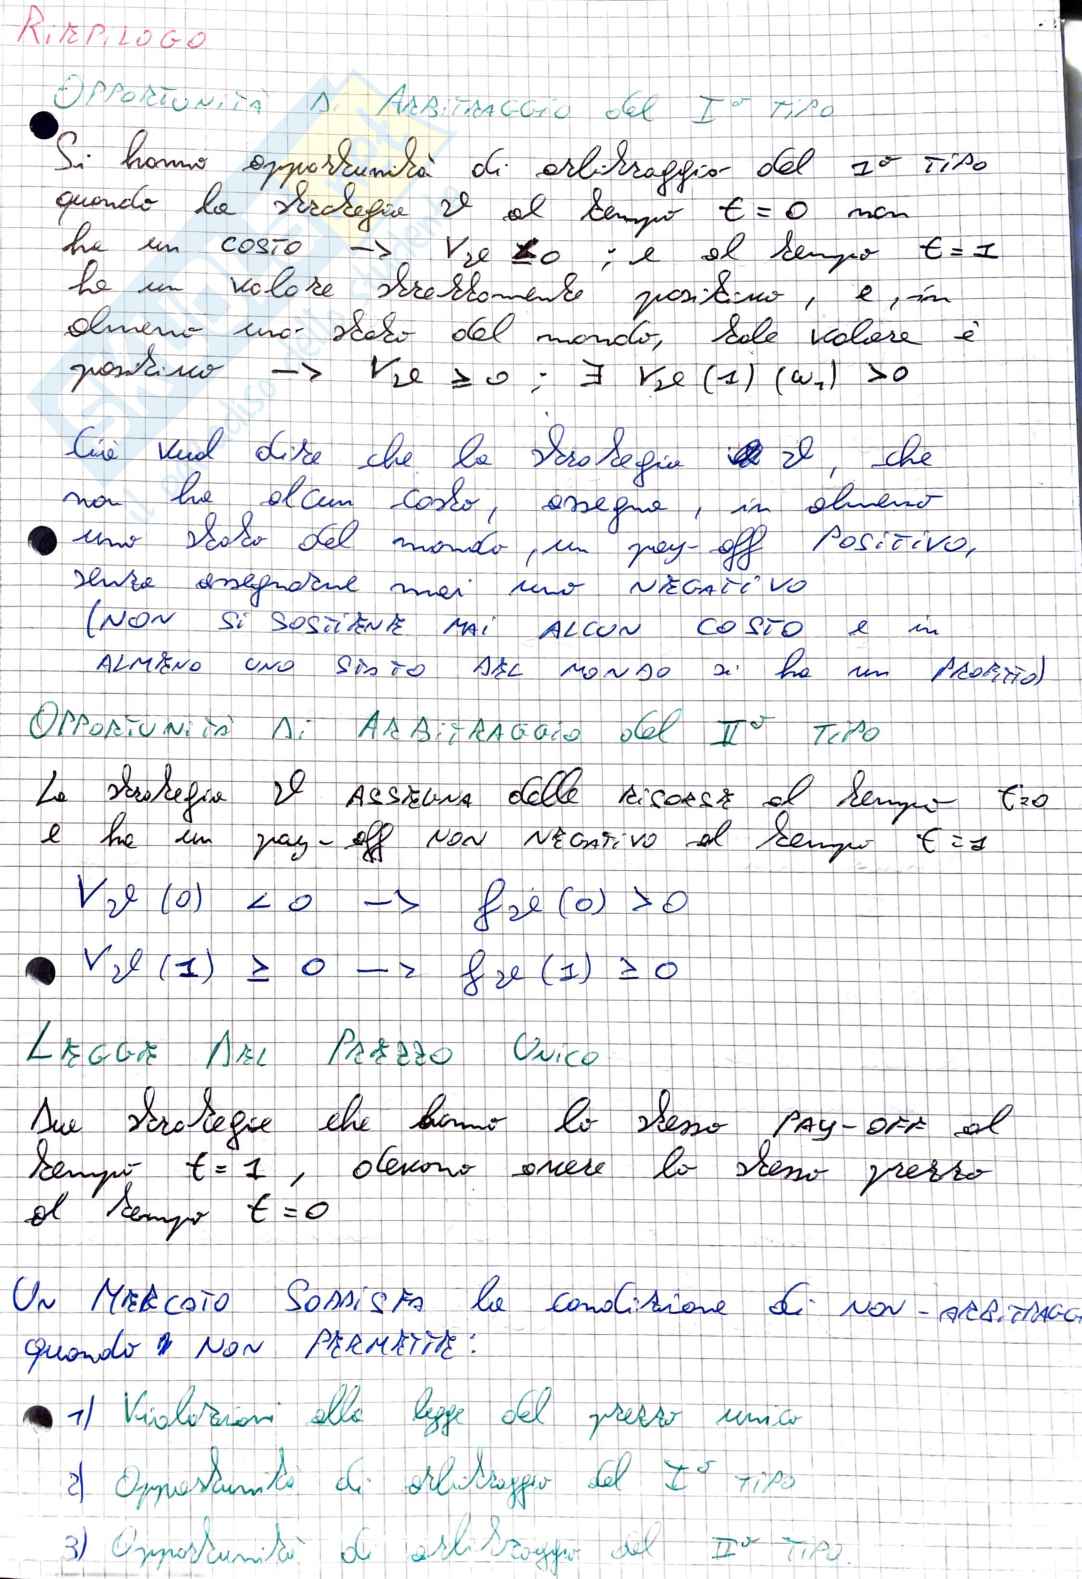 RIEPILOGO
OPPORTUNITÀ DI ARBITRAGGIO del I° TIPO
Si hanno opportunità di arbitraggio del 1° TIPO
quando la strategia ϑ al tempo t=0 non
ha un COSTO -> Vϑ ≤0 ; e al tempo t=1
ha un valore strettamente positivo, e, in
almeno uno stato del mondo, tale valore è
positivo -> Vϑ ≥0 ; ∃ Vϑ(1)(ω1) >0
Ciò vuol dire che la strategia ϑ, che
non ha alcun costo, assegna, in almeno
uno stato del mondo, un pay-off POSITIVO,
senza assegnarne mai uno NEGATIVO
(NON SI SOSTIENE MAI ALCUN COSTO e in
ALMENO UNO STATO DEL MONDO si ha un PROFITTO)
OPPORTUNITÀ DI ARBITRAGGIO del II° TIPO
La strategia ϑ ASSEGNA delle RISORSE al tempo t=0
e ha un pay-off NON NEGATIVO al tempo t=1
Vϑ(0) <0 -> fϑ(0) >0
Vϑ(1) ≥ 0 -> fϑ(1) ≥0
LEGGE DEL PREZZO UNICO
Due strategie che hanno lo stesso PAY-OFF al
tempo t=1, devono avere lo stesso prezzo
al tempo t=0
UN MERCATO SODDISFA la condizione di NON-ARBITRAGG
quando NON PERMETTE:
1) Violazioni alla legge del prezzo unico
2) Opportunità di arbitraggio del I° TIPO
3) Opportunità di arbitraggio del II° TIPO.